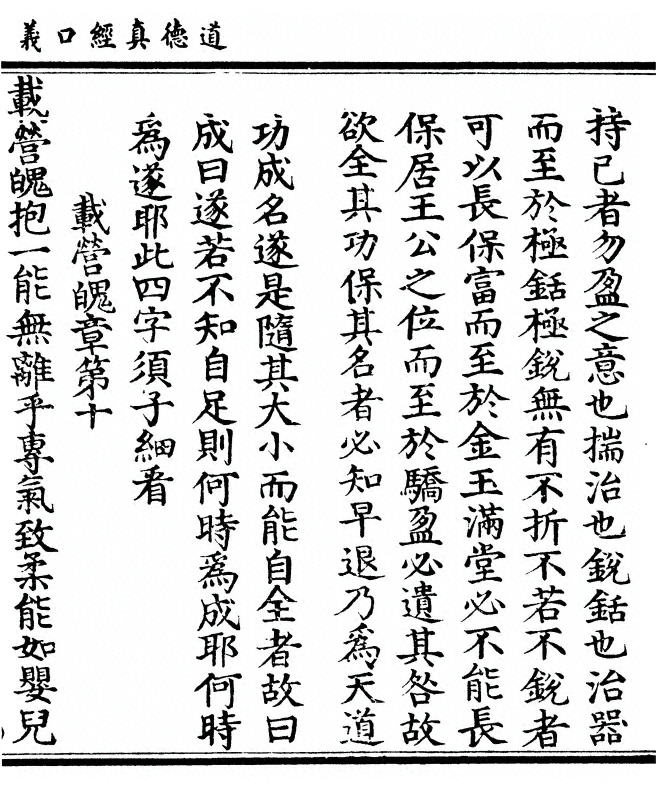 道德真經口義
持已者勿盈之意也揣治也銳銛也治器
而至於極銛極銳無有不折不若不銳者
可以長保富而至於金玉滿堂必不能長
保居王公之位而至於驕盈必遺其咎故
欲全其功保其名者必知早退乃爲天道
功成名遂是隨其大小而能自全者故曰
成曰遂若不知自足則何時爲成耶何時
爲遂耶此四字須子細看
載營魄章第十
載營魄抱一能無離乎專氣致柔能如嬰兒